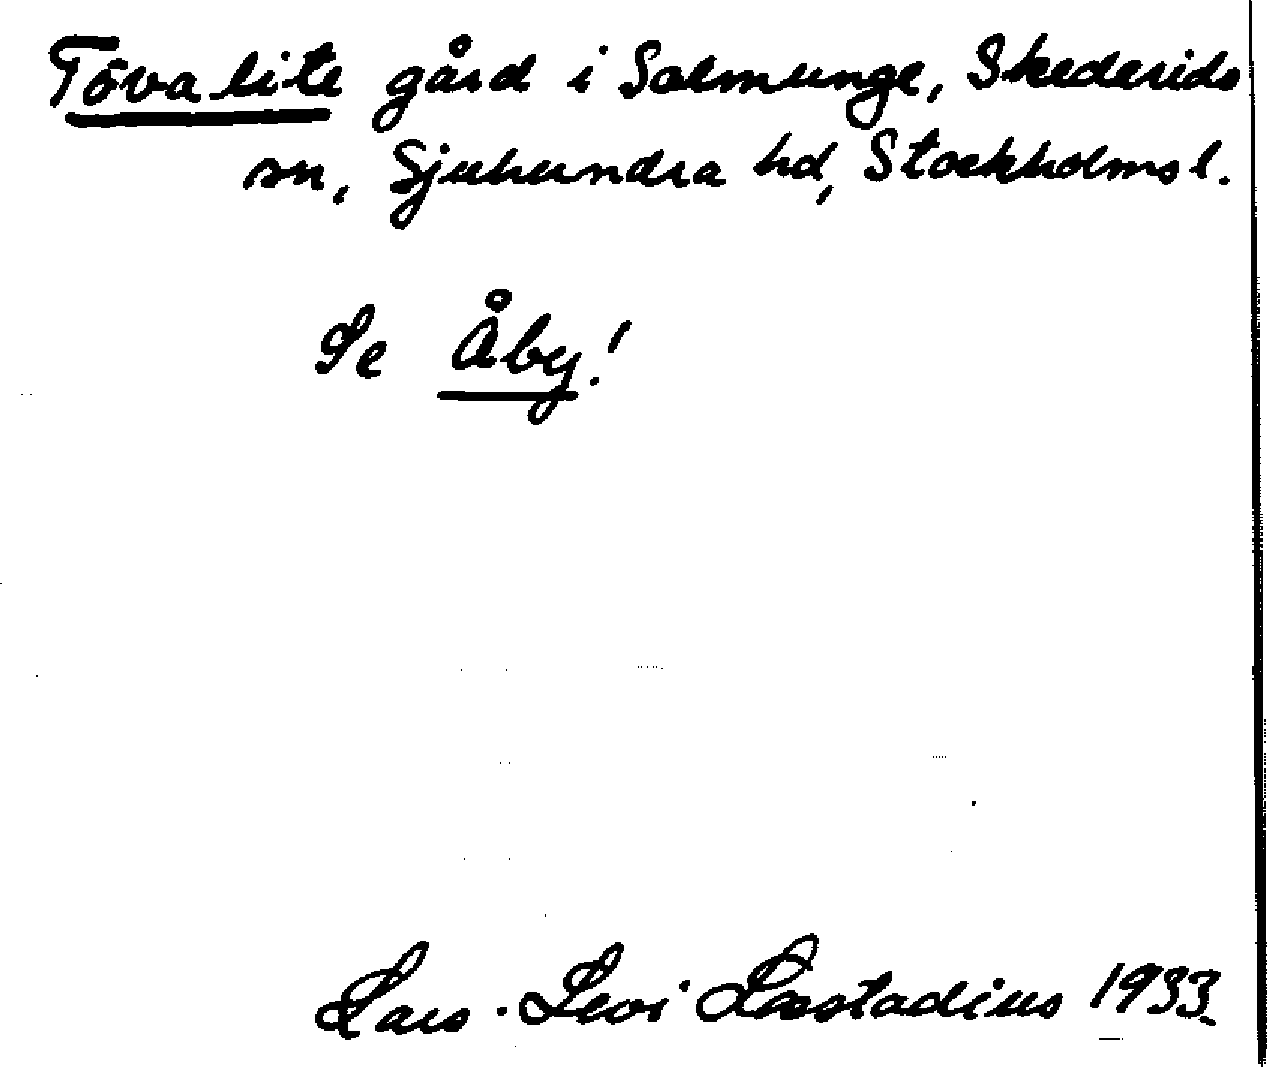 Tövalite gård i Salmunge, Skederids
sn, Sjuhundra hd, Stockholms l.
Se Åby!
Lars-Levi Læstadius 1933